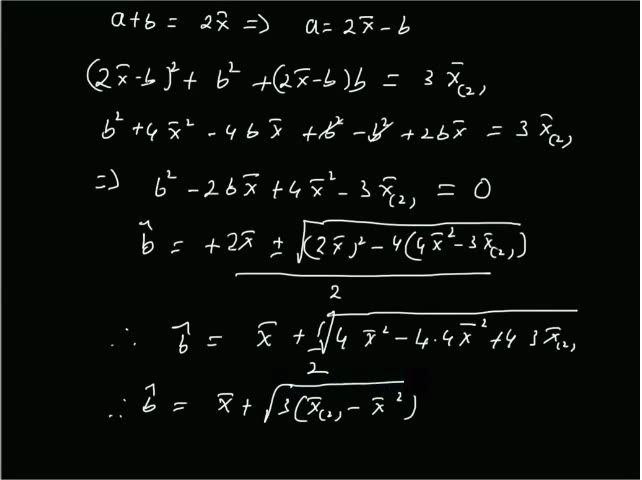 a+b = 2x̄ => a = 2x̄-b
(2x̄-b)² + b² + (2x̄-b)b = 3 x̄₍₂₎
b² + 4x̄² - 4bx̄ + b² - b² + 2bx̄ = 3 x̄₍₂₎
=> b² - 2bx̄ + 4x̄² - 3x̄₍₂₎ = 0
b̂ = +2x̄ ± √((2x̄)² - 4(4x̄² - 3x̄₍₂₎)) / 2
∴ b̂ = x̄ + 1/2 √(4 x̄² - 4·4x̄² + 4 3x̄₍₂₎)
∴ b̂ = x̄ + √(3(x̄₍₂₎ - x̄²))